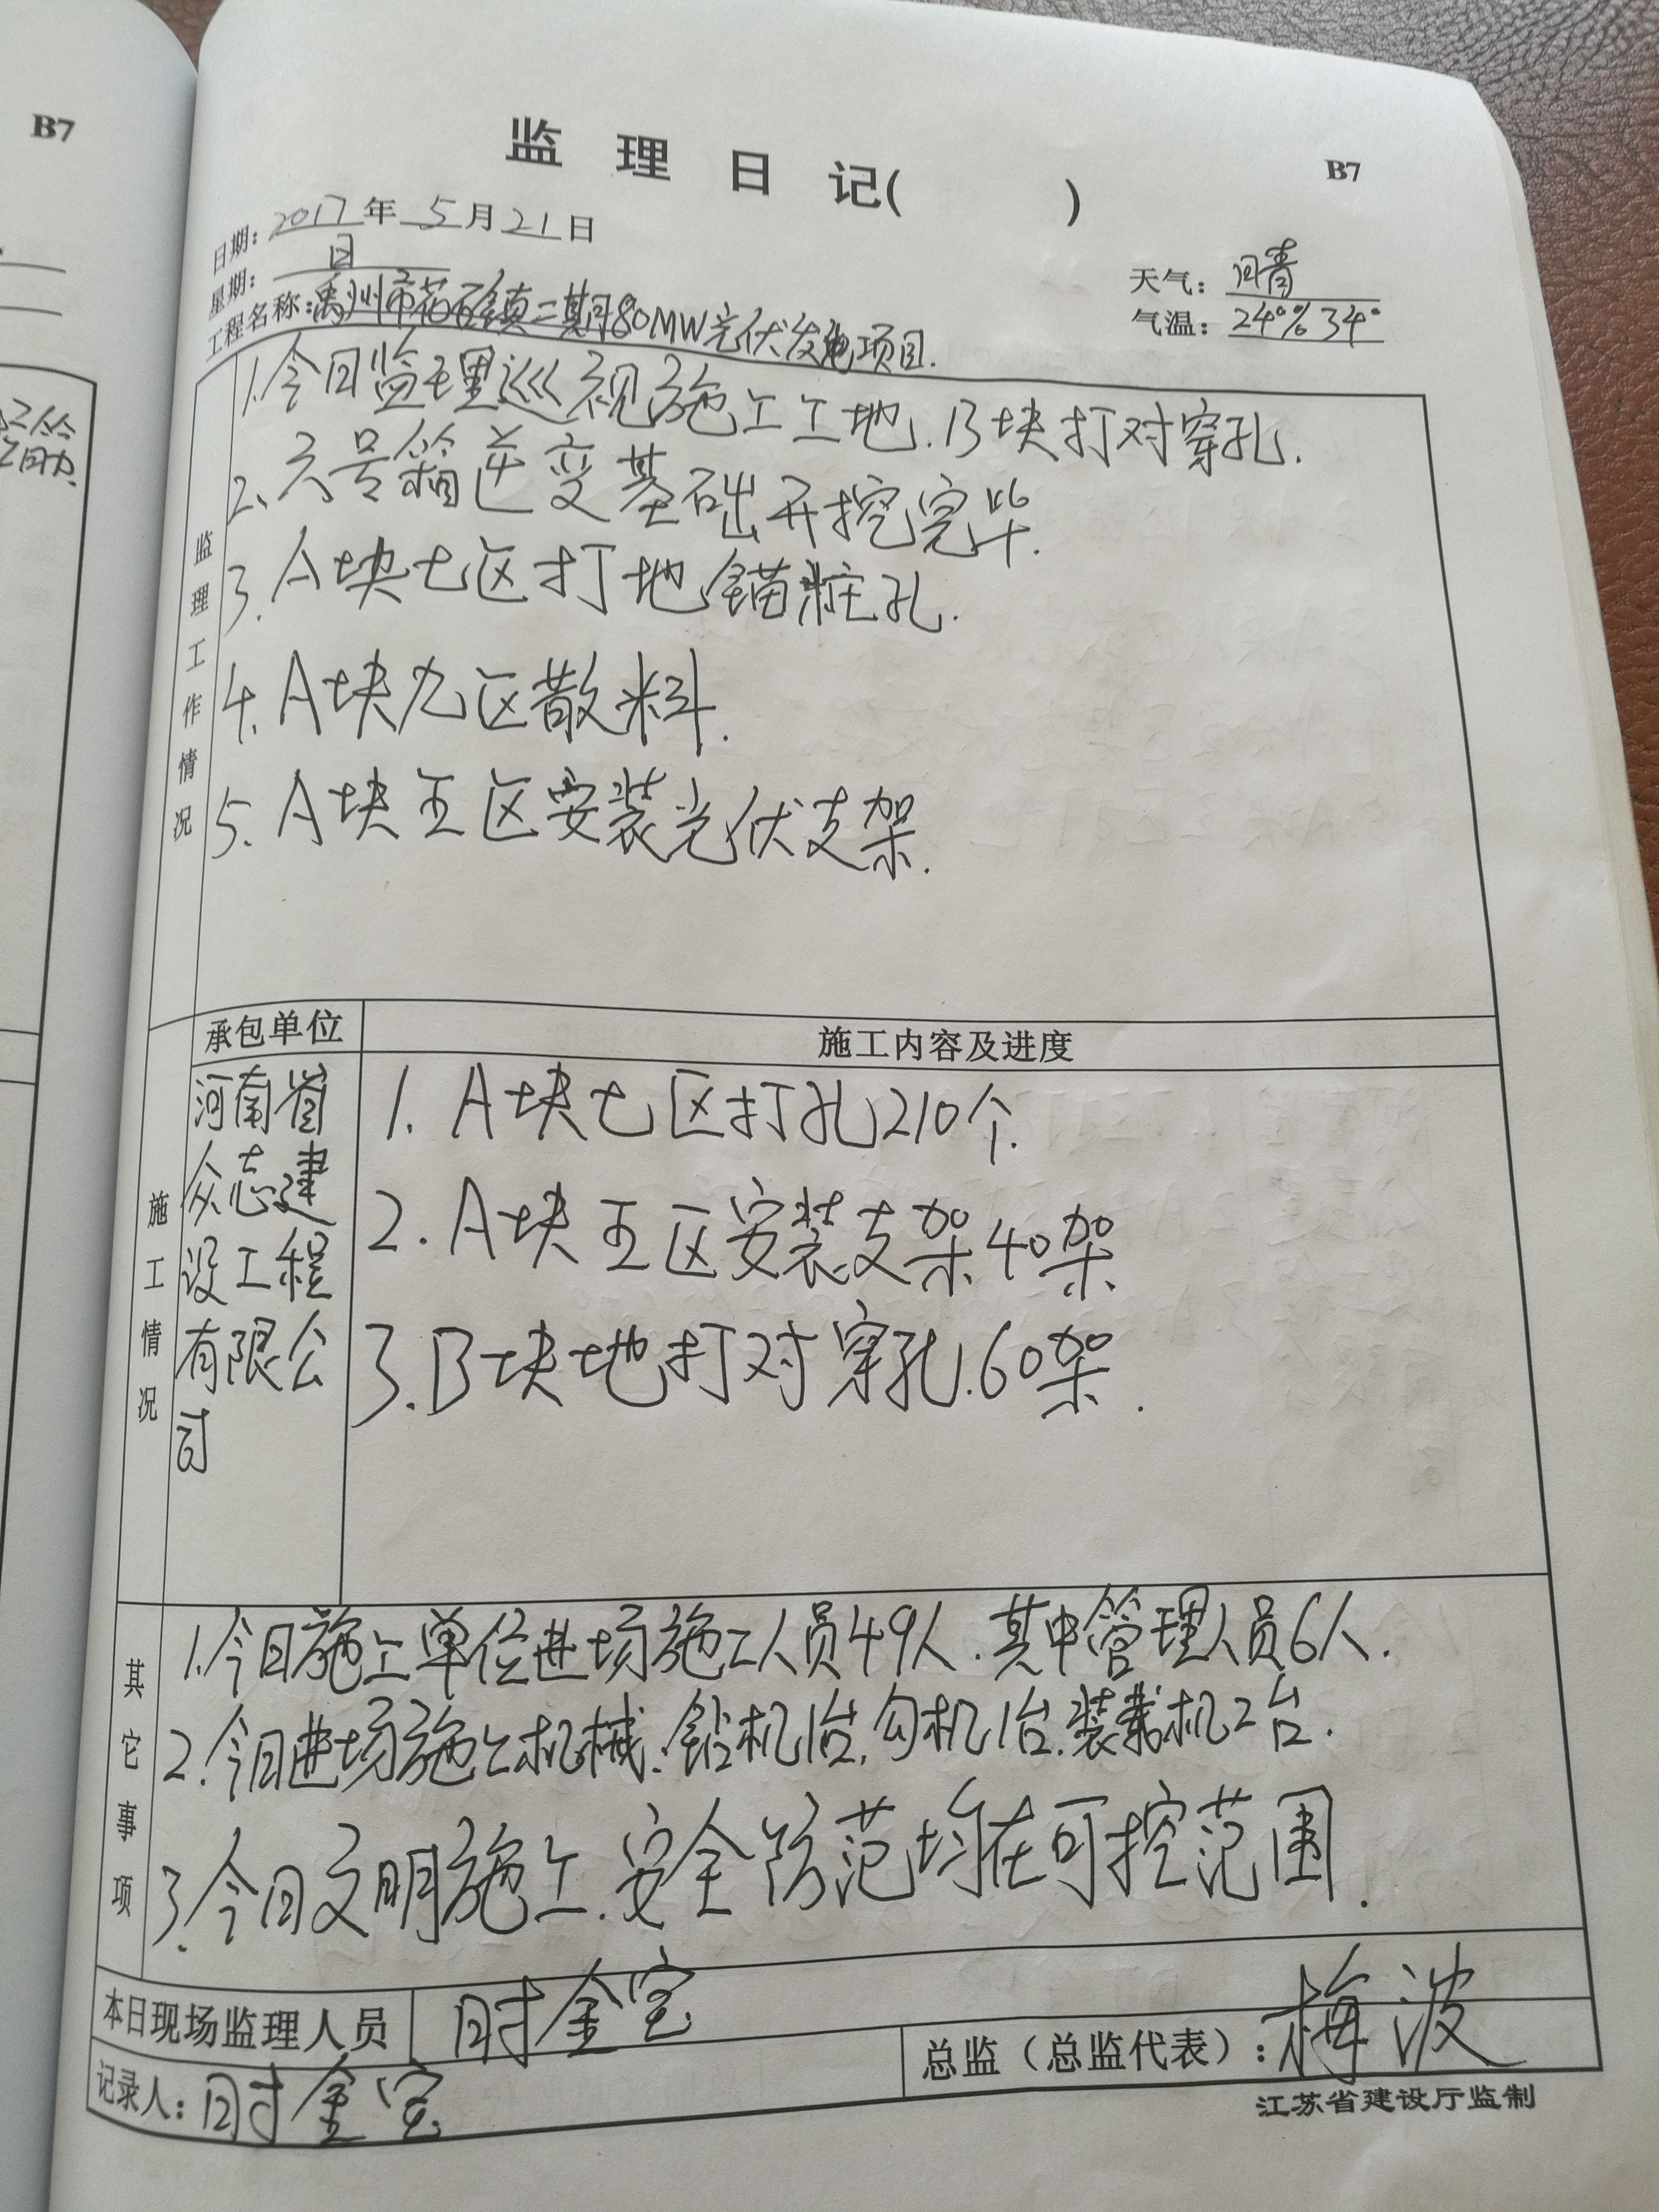 B7
监理日记( )
B7
日期：2017年5月21日
星期：日
天气：晴
工程名称：禹州市花石镇二期80MW光伏发电项目.
气温：24°% 34°
监理工作情况
1.今日监理巡视施工工地.B块打对穿孔.
2.六号箱逆变基础开挖完毕.
3.A块七区打地锚桩孔.
4.A块九区散料.
5.A块五区安装光伏支架.
承包单位
施工内容及进度
施工情况
河南省
众志建
设工程
有限公
司
1.A块七区打孔210个.
2.A块五区安装支架40架
3.B块地打对穿孔.60架.
其它事项
1.今日施工单位进场施工人员49人.其中管理人员6人.
2.今日进场施工机械.钻机1台,勾机1台.装载机2台.
3.今日文明施工.安全防范均在可控范围.
本日现场监理人员 时金宝
总监（总监代表）：梅波
记录人：时金宝
江苏省建设厅监制